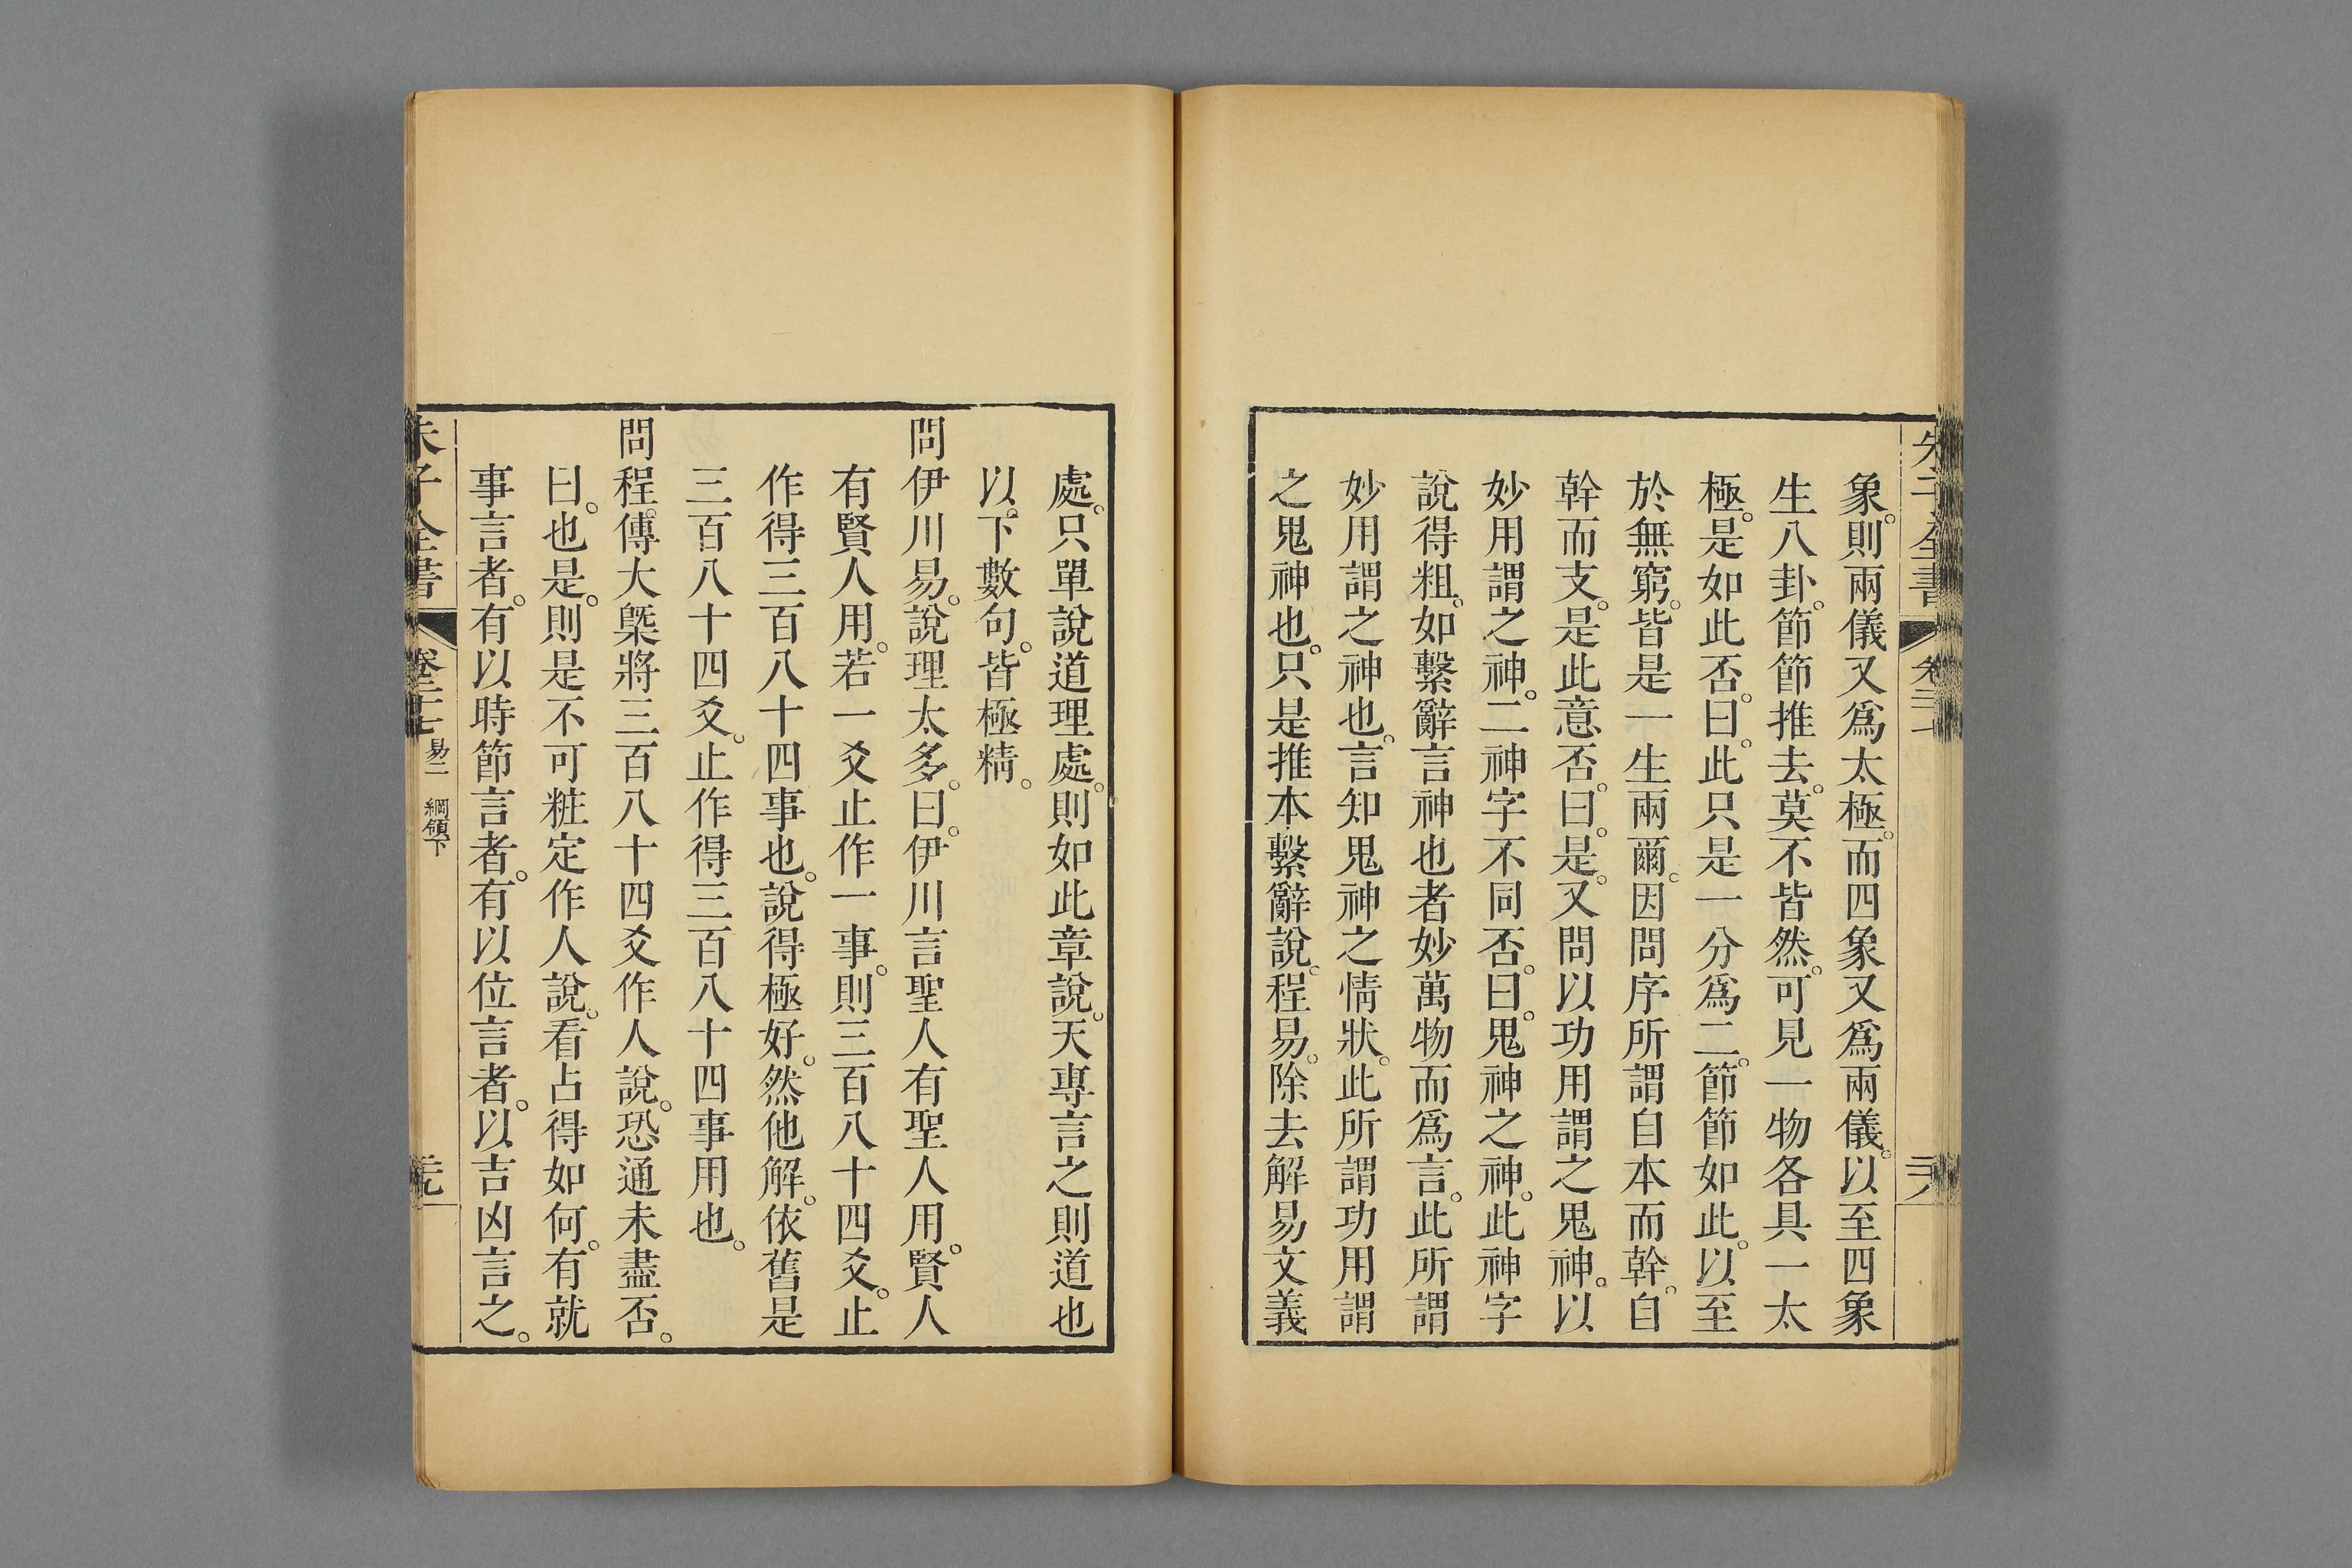 象。則兩儀又爲太極。而四象又爲兩儀。以至四象
生八卦。節節推去。莫不皆然。可見一物各具一太
極。是如此否。曰。此只是一分爲二。節節如此。以至
於無窮。皆是一生兩爾。因問序所謂自本而幹。自
幹而支。是此意否。曰。是。又問以功用謂之鬼神。以
妙用謂之神。二神字不同否。曰。鬼神之神。此神字
說得粗。如繫辭言神也者妙萬物而爲言。此所謂
妙用謂之神也。言知鬼神之情狀。此所謂功用謂
之鬼神也。只是推本繫辭說。程易。除去解易文義
處。只單說道理處。則如此章說。天專言之則道也
以。下數句。皆極精。
問伊川易。說理太多。曰。伊川言聖人有聖人用。賢人
有賢人用。若一爻止作一事。則三百八十四爻。止
作得三百八十四事也。說得極好。然他解。依舊是
三百八十四爻。止作得三百八十四事用也。
問程。傳大槩將三百八十四爻作人說。恐通未盡否。
曰。也是。則是不可粧定作人說。看占得如何。有就
事言者。有以時節言者。有以位言者。以吉凶言之。
朱子全書 卷二十七 易二 綱領下